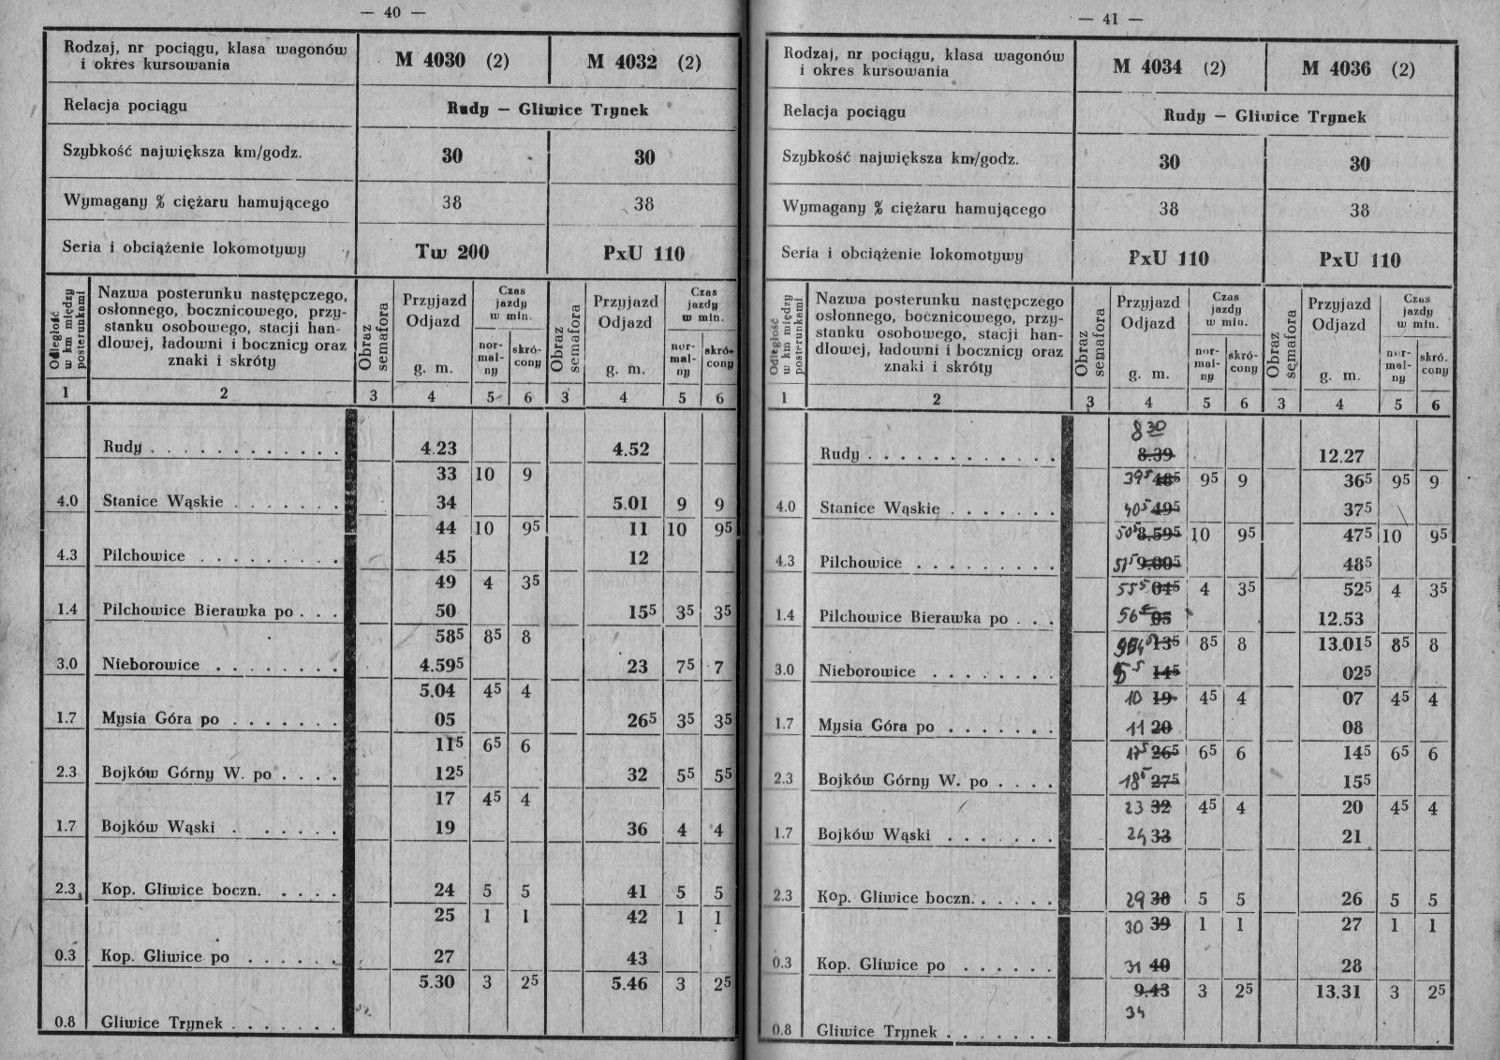 — 40 —
Rodzaj, nr pociągu, klasa wagonów i okres kursowania | M 4030 (2) | M 4032 (2)
Relacja pociągu | Rudy — Gliwice Trynek
Szybkość największa km/godz. | 30 | 30
Wymagany % ciężaru hamującego | 38 | 38
Seria i obciążenie lokomotywy | Tw 200 | PxU 110
Odległość w km między posterunkami | Nazwa posterunku następczego, osłonnego, bocznicowego, przystanku osobowego, stacji handlowej, ładowni i bocznicy oraz znaki i skróty | Obraz semafora | Przyjazd Odjazd g. m. | Czas jazdy w min. normalny | skrócony | Obraz semafora | Przyjazd Odjazd g. m. | Czas jazdy w min. normalny | skrócony
1 | 2 | 3 | 4 | 5 | 6 | 3 | 4 | 5 | 6
Rudy . . . . . . . . . . . . | 4.23 | 4.52
33 | 10 | 9
4.0 | Stanice Wąskie . . . . . . . | 34 | 5.01 | 9 | 9
44 | 10 | 9⁵ | 11 | 10 | 9⁵
4.3 | Pilchowice . . . . . . . . . | 45 | 12
49 | 4 | 3⁵
1.4 | Pilchowice Bierawka po . . . | 50 | 15⁵ | 3⁵ | 3⁵
58⁵ | 8⁵ | 8
3.0 | Nieborowice . . . . . . . . | 4.59⁵ | 23 | 7⁵ | 7
5.04 | 4⁵ | 4
1.7 | Mysia Góra po . . . . . . . | 05 | 26⁵ | 3⁵ | 3⁵
11⁵ | 6⁵ | 6
2.3 | Bojków Górny W. po . . . . | 12⁵ | 32 | 5⁵ | 5⁵
17 | 4⁵ | 4
1.7 | Bojków Wąski . . . . . . | 19 | 36 | 4 | 4
2.3 | Kop. Gliwice boczn. . . . . | 24 | 5 | 5 | 41 | 5 | 5
25 | 1 | 1 | 42 | 1 | 1
0.3 | Kop. Gliwice po . . . . . . | 27 | 43
5.30 | 3 | 2⁵ | 5.46 | 3 | 2⁵
0.8 | Gliwice Trynek . . . . . . .
— 41 —
Rodzaj, nr pociągu, klasa wagonów i okres kursowania | M 4034 (2) | M 4036 (2)
Relacja pociągu | Rudy — Gliwice Trynek
Szybkość największa km/godz. | 30 | 30
Wymagany % ciężaru hamującego | 38 | 38
Seria i obciążenie lokomotywy | PxU 110 | PxU 110
Odległość w km między posterunkami | Nazwa posterunku następczego osłonnego, bocznicowego, przystanku osobowego, stacji handlowej, ładowni i bocznicy oraz znaki i skróty | Obraz semafora | Przyjazd Odjazd g. m. | Czas jazdy w min. normalny | skrócony | Obraz semafora | Przyjazd Odjazd g. m. | Czas jazdy w min. normalny | skró. cony
1 | 2 | 3 | 4 | 5 | 6 | 3 | 4 | 5 | 6
8 30
Rudy . . . . . . . . . . . . | 8.39 | 12.27
39⁵ 48⁵ | 9⁵ | 9 | 36⁵ | 9⁵ | 9
4.0 | Stanice Wąskie . . . . . . . | 40⁵ 49⁵ | 37⁵
50⁵ 8.59⁵ | 10 | 9⁵ | 47⁵ | 10 | 9⁵
4.3 | Pilchowice . . . . . . . . . | 51⁵ 9.00⁵ | 48⁵
55⁵ 04⁵ | 4 | 3⁵ | 52⁵ | 4 | 3⁵
1.4 | Pilchowice Bierawka po . . . | 56 05 | 12.53
13⁵ | 8⁵ | 8 | 13.01⁵ | 8⁵ | 8
3.0 | Nieborowice . . . . . . . | 14⁵ | 02⁵
10 19 | 4⁵ | 4 | 07 | 4⁵ | 4
1.7 | Mysia Góra po . . . . . . . | 11 20 | 08
17⁵ 26⁵ | 6⁵ | 6 | 14⁵ | 6⁵ | 6
2.3 | Bojków Górny W. po . . . . | 18⁵ 27⁵ | 15⁵
23 32 | 4⁵ | 4 | 20 | 4⁵ | 4
1.7 | Bojków Wąski . . . . . . . | 24 33 | 21
2.3 | Kop. Gliwice boczn. . . . . . | 29 38 | 5 | 5 | 26 | 5 | 5
30 39 | 1 | 1 | 27 | 1 | 1
0.3 | Kop. Gliwice po . . . . . . | 31 40 | 28
9.43 | 3 | 2⁵ | 13.31 | 3 | 2⁵
34
0.8 | Gliwice Trynek . . . . . . .